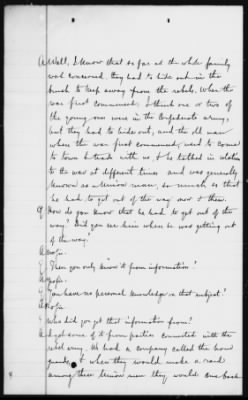 A. Well, I know that so far as the whole family
was concerned, they had to hide out in the
brush to keep away from the rebels. When the
war first commenced, I think one or two of
the young ones were in the Confederate army,
but they had to hide out, and the old man
when the war first commenced, used to come
to town & trade with us, & he talked in relation
to the war at different times and was generally
known as a Union man, so much so that
he had to get out of the way now & then.
Q. How do you know that he had to get out of the
way? Did you see him when he was getting out
of the way?
A. No sir.
Q. Then you only know it from information?
A. No sir.
Q. You have no personal knowledge on that subject?
A. No sir.
Q. Who did you get that information from?
A. I got some of it from parties connected with the
rebel army. We had a company called the home
guards, & when they would make a raid
among these Union men they would come back